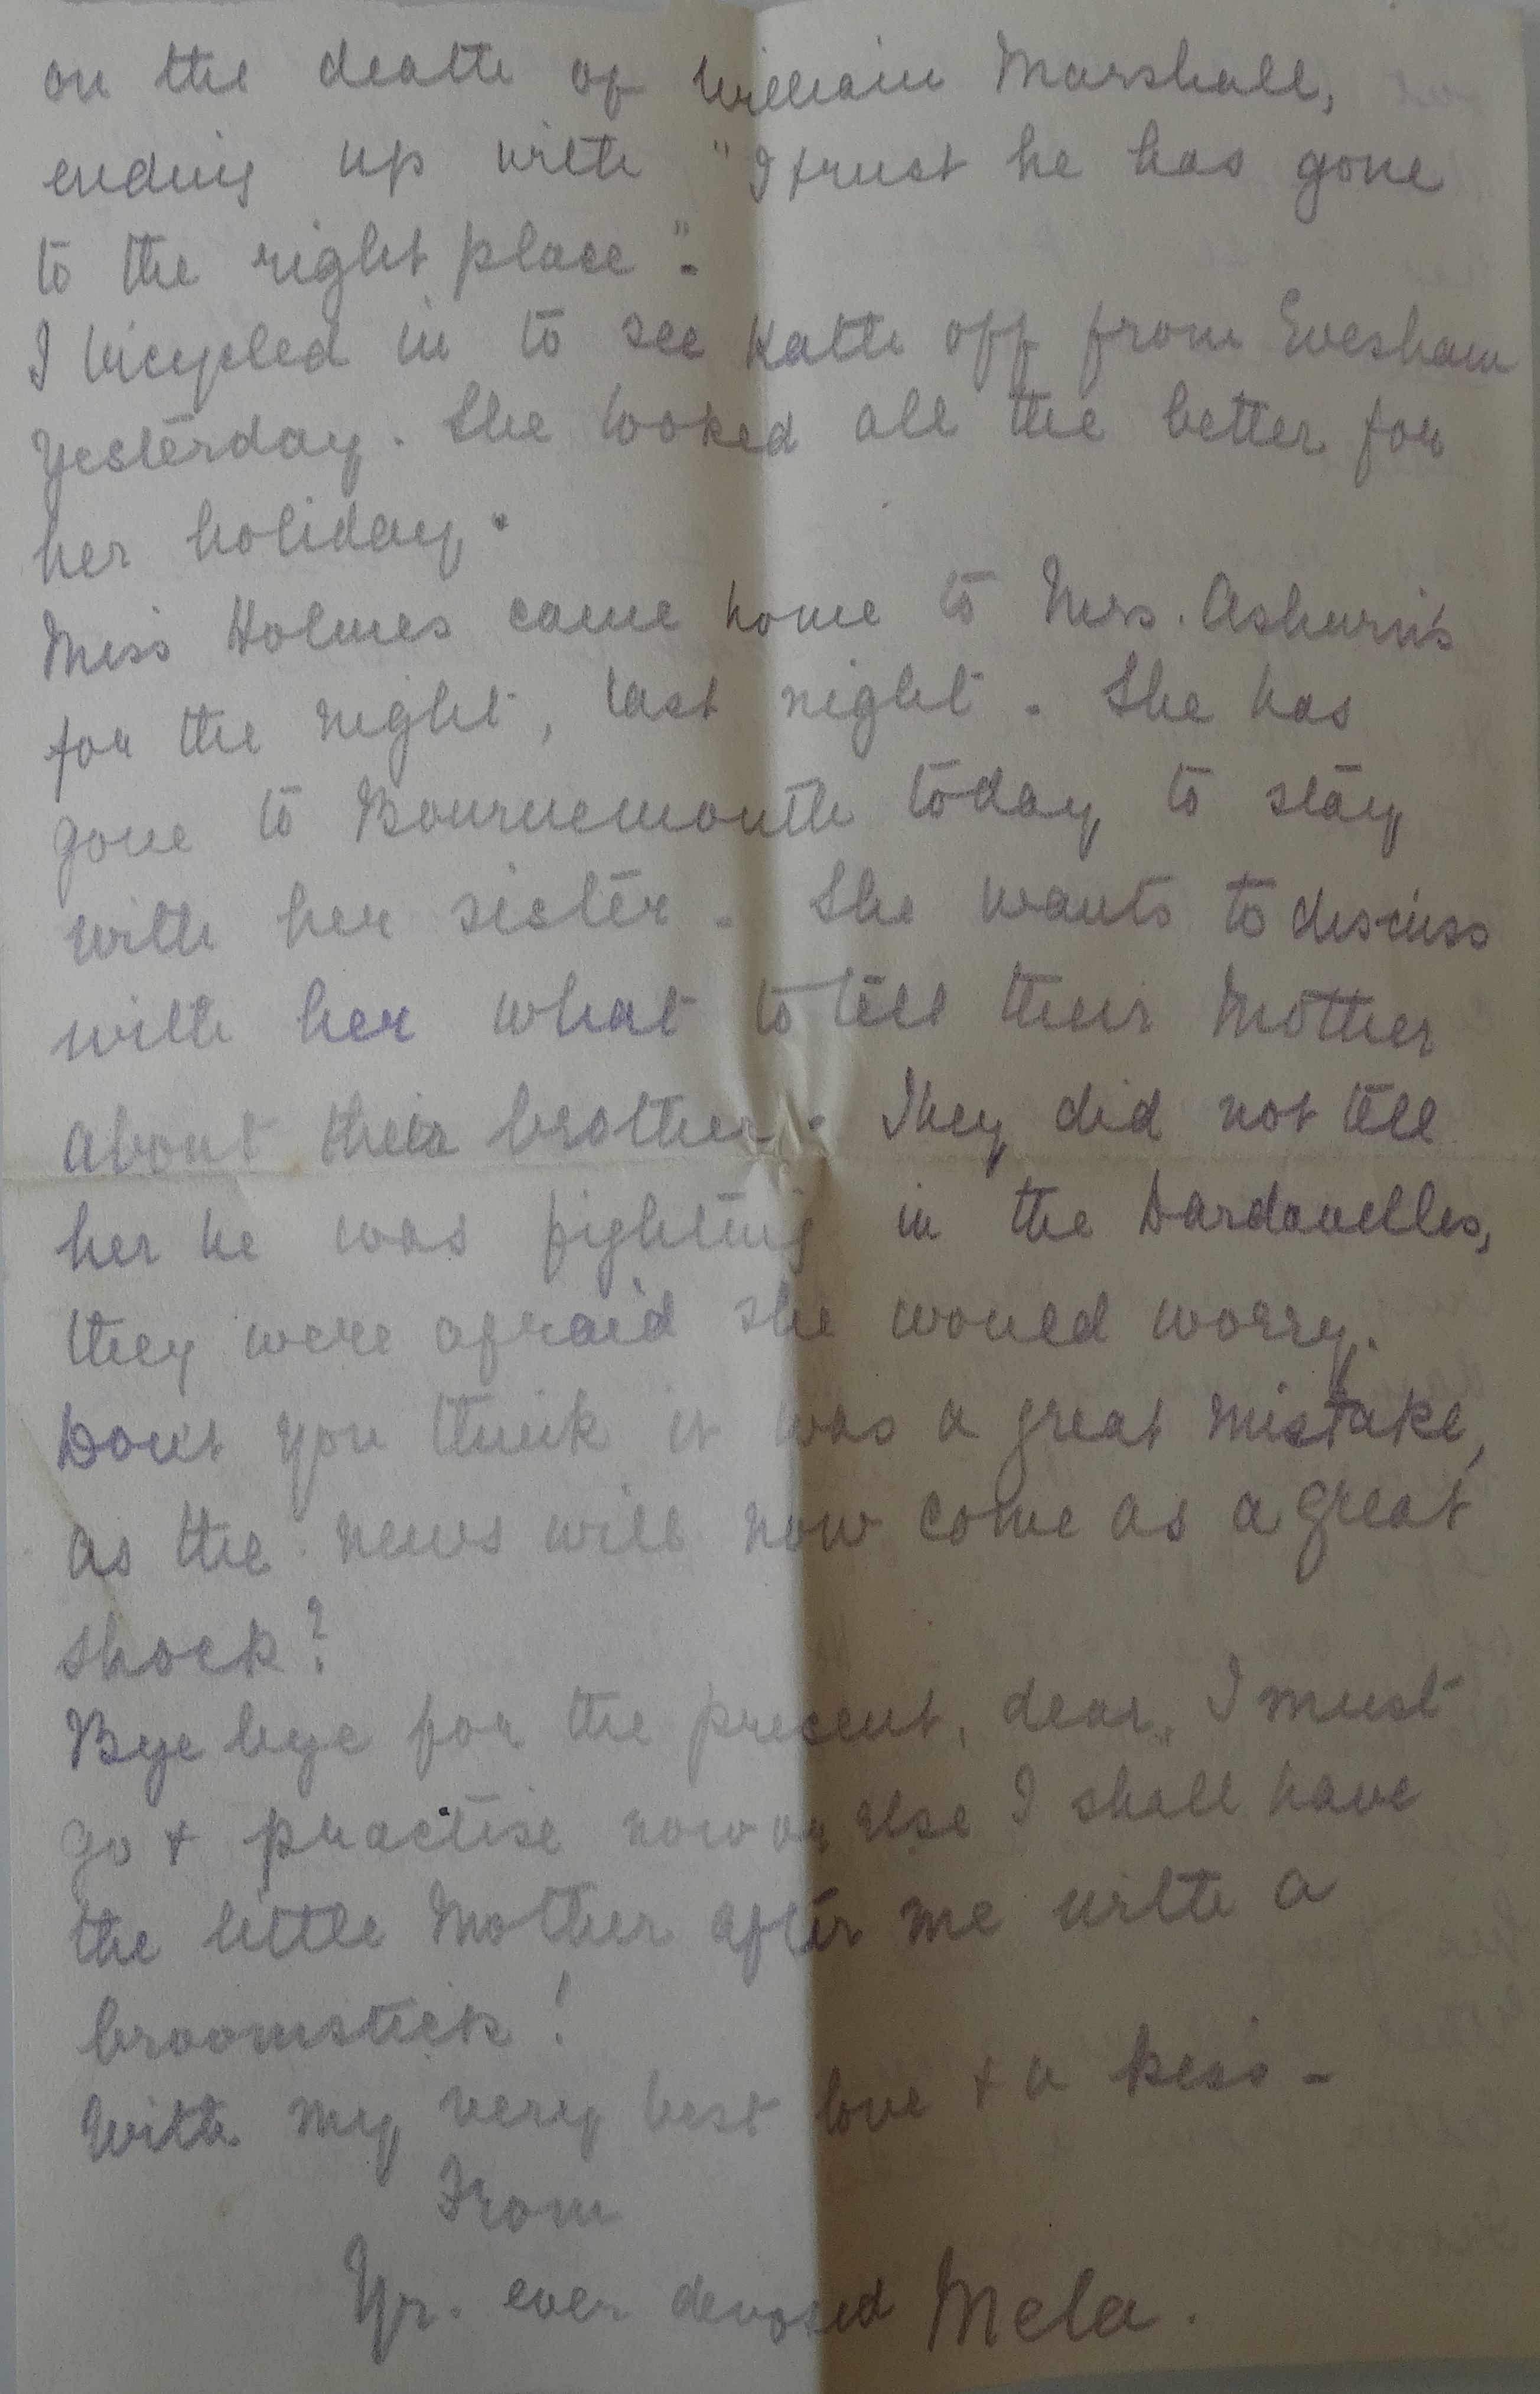 on the death of William Marshall,
ending up with "I trust he has gone
to the right place".
I bicycled in to see Kath off from Evesham
yesterday. She looked all the better for
her holiday.
Miss Holmes came home to Mrs. Ashurin's
for the night, last night. She has
gone to Bournemouth today to stay
with her sister. She wants to discuss
with her what to tell their Mother
about their brother. They did not tell
her he was fighting in the Dardanelles,
they were afraid she would worry.
Don't you think it was a great mistake,
as the news will now come as a great
shock?
Bye bye for the present, dear, I must
go & practise now or else I shall have
the little Mother after me with a
broomstick!
With my very best love & a kiss -
From
Yr. ever devoted Mela.